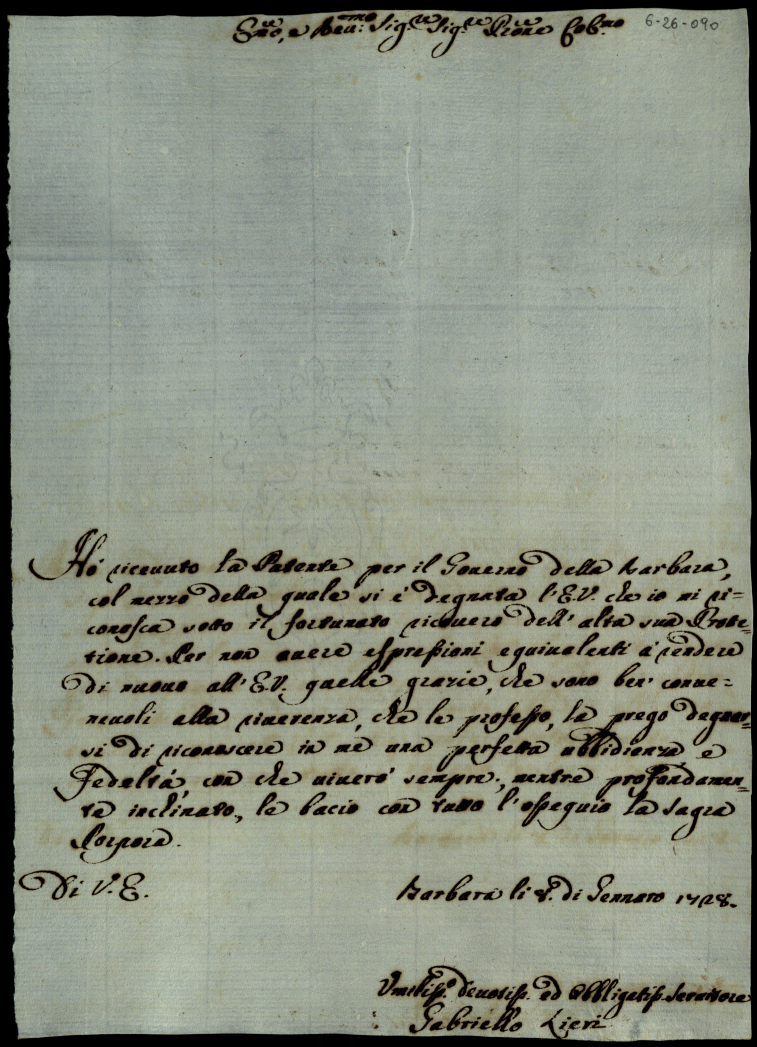 Em̃o, e Reu:mo Sig.re Sig.re Pr͠one Col.mo
6-26-090
Hò riceuuto la Patente per il Gouerno della Barbara,
col mezzo della quale si è degnata l'E.V. che io mi ri=
conosca sotto il fortunato ricouero dell'alta sua Prote=
tione. Per non auere espressioni equiualenti à rendere
di nuouo all'E.V. quelle grazie, che sono ben conue=
neuoli alla riuerenza, che le professo, la prego degnar=
si di riconoscere in me una perfetta ubbidienza e
Fedeltà, con che uiuerò sempre; mentre profondamen=
te inclinato, le bacio con tutto l'ossequio la Sagra
Porpora.
Di V.E.
Barbara li 8. di Gennaro 1728.
Vmiliss.o deuotiss. ed Obbligatiss. Seruitore
Gabriello Lieri